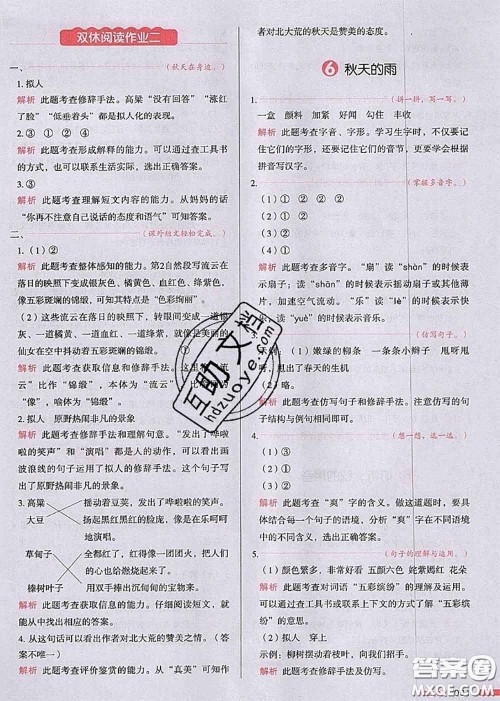 双休阅读作业二
一、（秋天在身边。）
1. 拟人
解析 此题考查修辞手法。高粱“没有回答”“涨红
了脸”“低垂着头”都是拟人化的表现。
2. ③ ① ④ ②
解析 此题考查形成解释的能力。可以通过查工具书
的方式，也可以联系生活实际，选出正确答案。
3. ③
解析 此题考查理解短文内容的能力。从妈妈的话
“你再不注意自己说话的态度和语气”可知答案。
二、（课外短文轻松完成。）
1.（1）②
解析 此题考查整体感知的能力。第2自然段写流云在
落日的映照下，转变成银灰、橘黄、血红、绛紫等色，
像五彩斑斓的锦缎，可知其特点是“色彩绚丽”。
（2）流云在落日的映照下，转变成一道银
灰、一道橘黄、一道血红、一道绛紫，就像是美丽的
仙女在空中抖动着五彩斑斓的锦缎。
解析 此题考查获取信息和修辞手法。这里
云”比作“锦缎”，本体为“流云”
“像”，喻体为“锦缎”。
2. 拟人 原野热闹非凡的景象
解析 此题考查修辞手法和理解句意。“发出了哗啦
啦的笑声”和“演唱”都是人的动作，可以看出画
波浪线的句子运用了拟人的修辞手法。这个句子写
出了原野热闹非凡的景象。
3. 高粱 摇动着豆荚，发出了哗啦啦的笑声。
大豆 扬起黑红黑红的脸庞，像是在乐呵呵
地演唱。
草甸子 全都红了，红得像一团团火，把人
们的脸都映红了。
榛树叶子 用双手捧出沉甸甸的宝物来。
解析 此题考查获取信息的能力。仔细阅读短文，从
中找出相应的答案。
4. 从这句话可以看出作者对北大荒的赞美之情。（答
案不唯一）
解析 此题考查评价鉴赏的能力。从“真美”可知作
者对北大荒的秋天是赞美的态度。
6 秋天的雨
1.（拼一拼，写一写。）
一盒 颜料 加紧 好闻 勾住 丰收
解析 此题考查字音、字形。学习生字时，不仅要记
住它们的字形，还要记住它们的字音。做题时要根据
拼音写汉字。
2.（掌握多音字。）
（1）①
（2）②
（3）②
（4）①
解析 此题考查多音字。“扇”读“shàn”的时候表
示量词，读“shān”的时候表示摇动扇子或其他薄
片，加速空气流动。“乐”读“lè”的时候表示快
乐，读“yuè”的时候表示音乐。
3.（仿写句子。）
（1）嫩绿的柳条 一条条小辫子 甩呀甩
呀，甩出了春天的生机
（2）略。
解析 此题考查仿写句子。应注意仿写句子的句
子结构与例句相同即可。
4.（想一想，选一选。）
（1）③
（2）②
（3）①
解析 此题考查“爽”字的含义。做这道题时，要
具体分析每一个句子的语境，分析“爽”字在
句子中的意思，选出正确答案。
5.（句子的理解与运用。）
（1）颜色繁多，非常好看 五颜六色 姹紫嫣红 花朵
解析 此题考查对词语“五彩缤纷”的理解及运用。
可以查工具书或联系上下文的方式了解“五彩缤
纷”的含义。
（2）拟人 穿上
示例：柳树摆动着枝叶，向我们招手。
解析 此题考查修辞手法及仿写。
互助文档
hdzuoye.com
答案圈
MXQE.COM